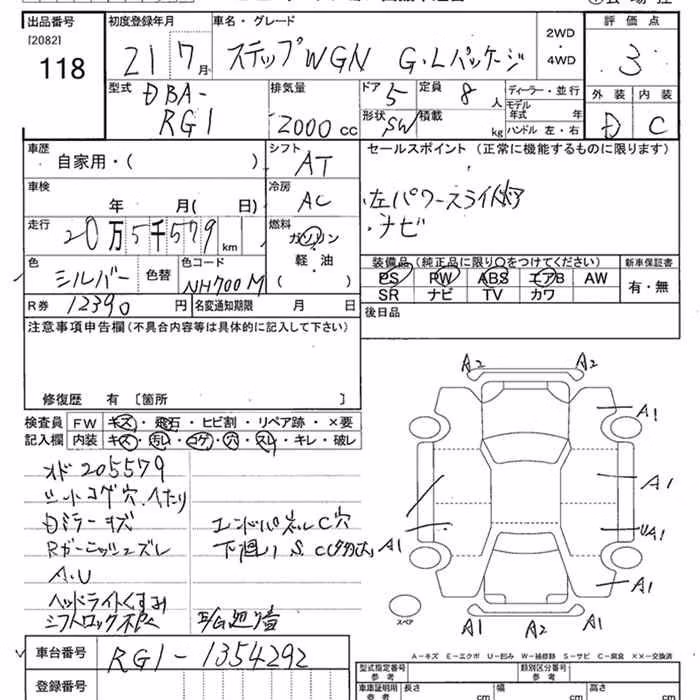 出品番号 初度登録年月 車名・グレード 評価点
[2082]
118
21 7月 ステップWGN G・Lパッケージ
2WD
・
4WD
3
型式 排気量 ドア 定員 ディーラー・並行 外装 内装
DBA-
RG1
2000 cc
5 8 人
モデル年式 年
形状 SW 積載 kg ハンドル 左・右
D C
車歴 シフト セールスポイント (正常に機能するものに限ります)
自家用・( ) AT
車検 冷房
年 月( 日) AC
左パワースライドドア
・ナビ
走行 燃料
20万5千579 km ガソリン
軽・油
( )
色 シルバー 色替 色コード NH700M
装備品 (純正品に限り○をつけてください) 新車保証書
PS PW ABS エアB AW 有・無
SR ナビ TV カワ
R券 12390 円 名変通知期限 月 日
後日品
注意事項申告欄 (不具合内容等は具体的に記入して下さい)
修復歴 有 [箇所 ]
検査員 FW キズ・飛石・ヒビ割・リペア跡・×要
記入欄 内装 キズ・汚レ・コゲ・穴・スレ・キレ・破レ
オド205579
シートコゲ穴、ヘたり
Dミラーキズ
エンドパネルC穴
Rガーニッシュズレ
下廻り S、C(多大)
A・U
ヘッドライトくすみ
シフトロック不良 E/G廻り音
A2 A2
A1
A1
A1 UA1
A1
A1 A2 A1
スペア
A-キズ E-エクボ U-凹み W-補修跡 S-サビ C-腐食 XX-交換済
車台番号 RG1-1354292
登録番号
型式指定番号 類別区分番号
参考 参考
車庫証明用 長さ 幅 高さ
参考 cm cm cm